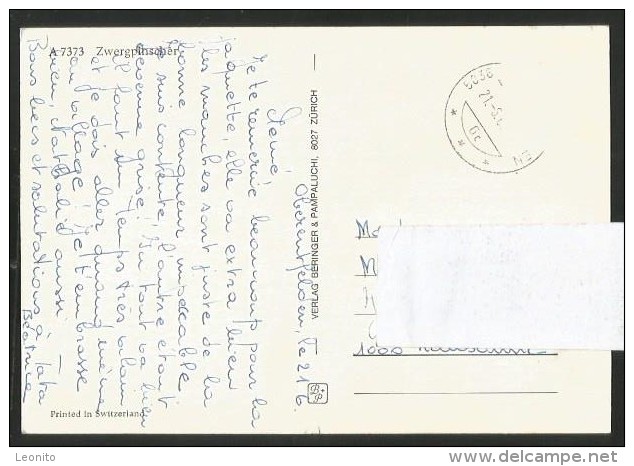 A 7373 Zwergpinscher
Oberentfelden, le 21.6.
Mémé,
Je te remercie beaucoup pour la
jaquette, elle va extra bien
les manches sont juste de la
bonne longueur impeccable
je suis contente, l'autre étant
devenue grise. Du tout va bien
Il faut du temps très vilain
et je dois aller quand même
au village. Je t'embrasse
bien, Nathalie aussi. —
Bons becs et salutations à Tata
Béatrice
VERLAG BERINGER & PAMPALUCHI, 8027 ZÜRICH
Printed in Switzerland
5036
21.-6.
EN
1000 Lausanne
Leonito
www.delcampe.net